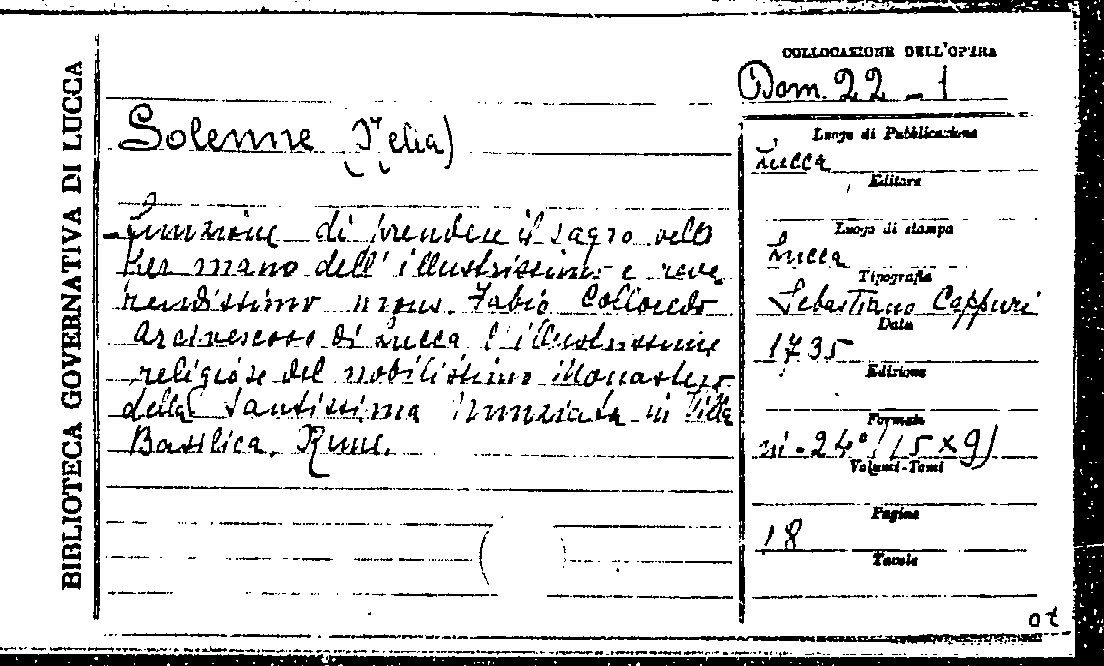 BIBLIOTECA GOVERNATIVA DI LUCCA
COLLOCAZIONE DELL'OPERA
Dom. 22 - 1
Solenne
Funzione di prendere il sagro velo
per mano dell' illustrissimo e reve
rendissimo mons. Fabio Colloredo
arcivescovo di Lucca l'illustrissime
religiose del nobilissimo Monastero
della Santissima Nunziata in Villa
Basilica. Rime.
Luogo di Pubblicazione
Lucca
Editore
Luogo di stampa
Lucca
Tipografia
Sebastiano Cappuri
Data
1735
Edizione
Formato
in-24° (15 x 9)
Volumi-Tomi
Pagine
18
Tavole